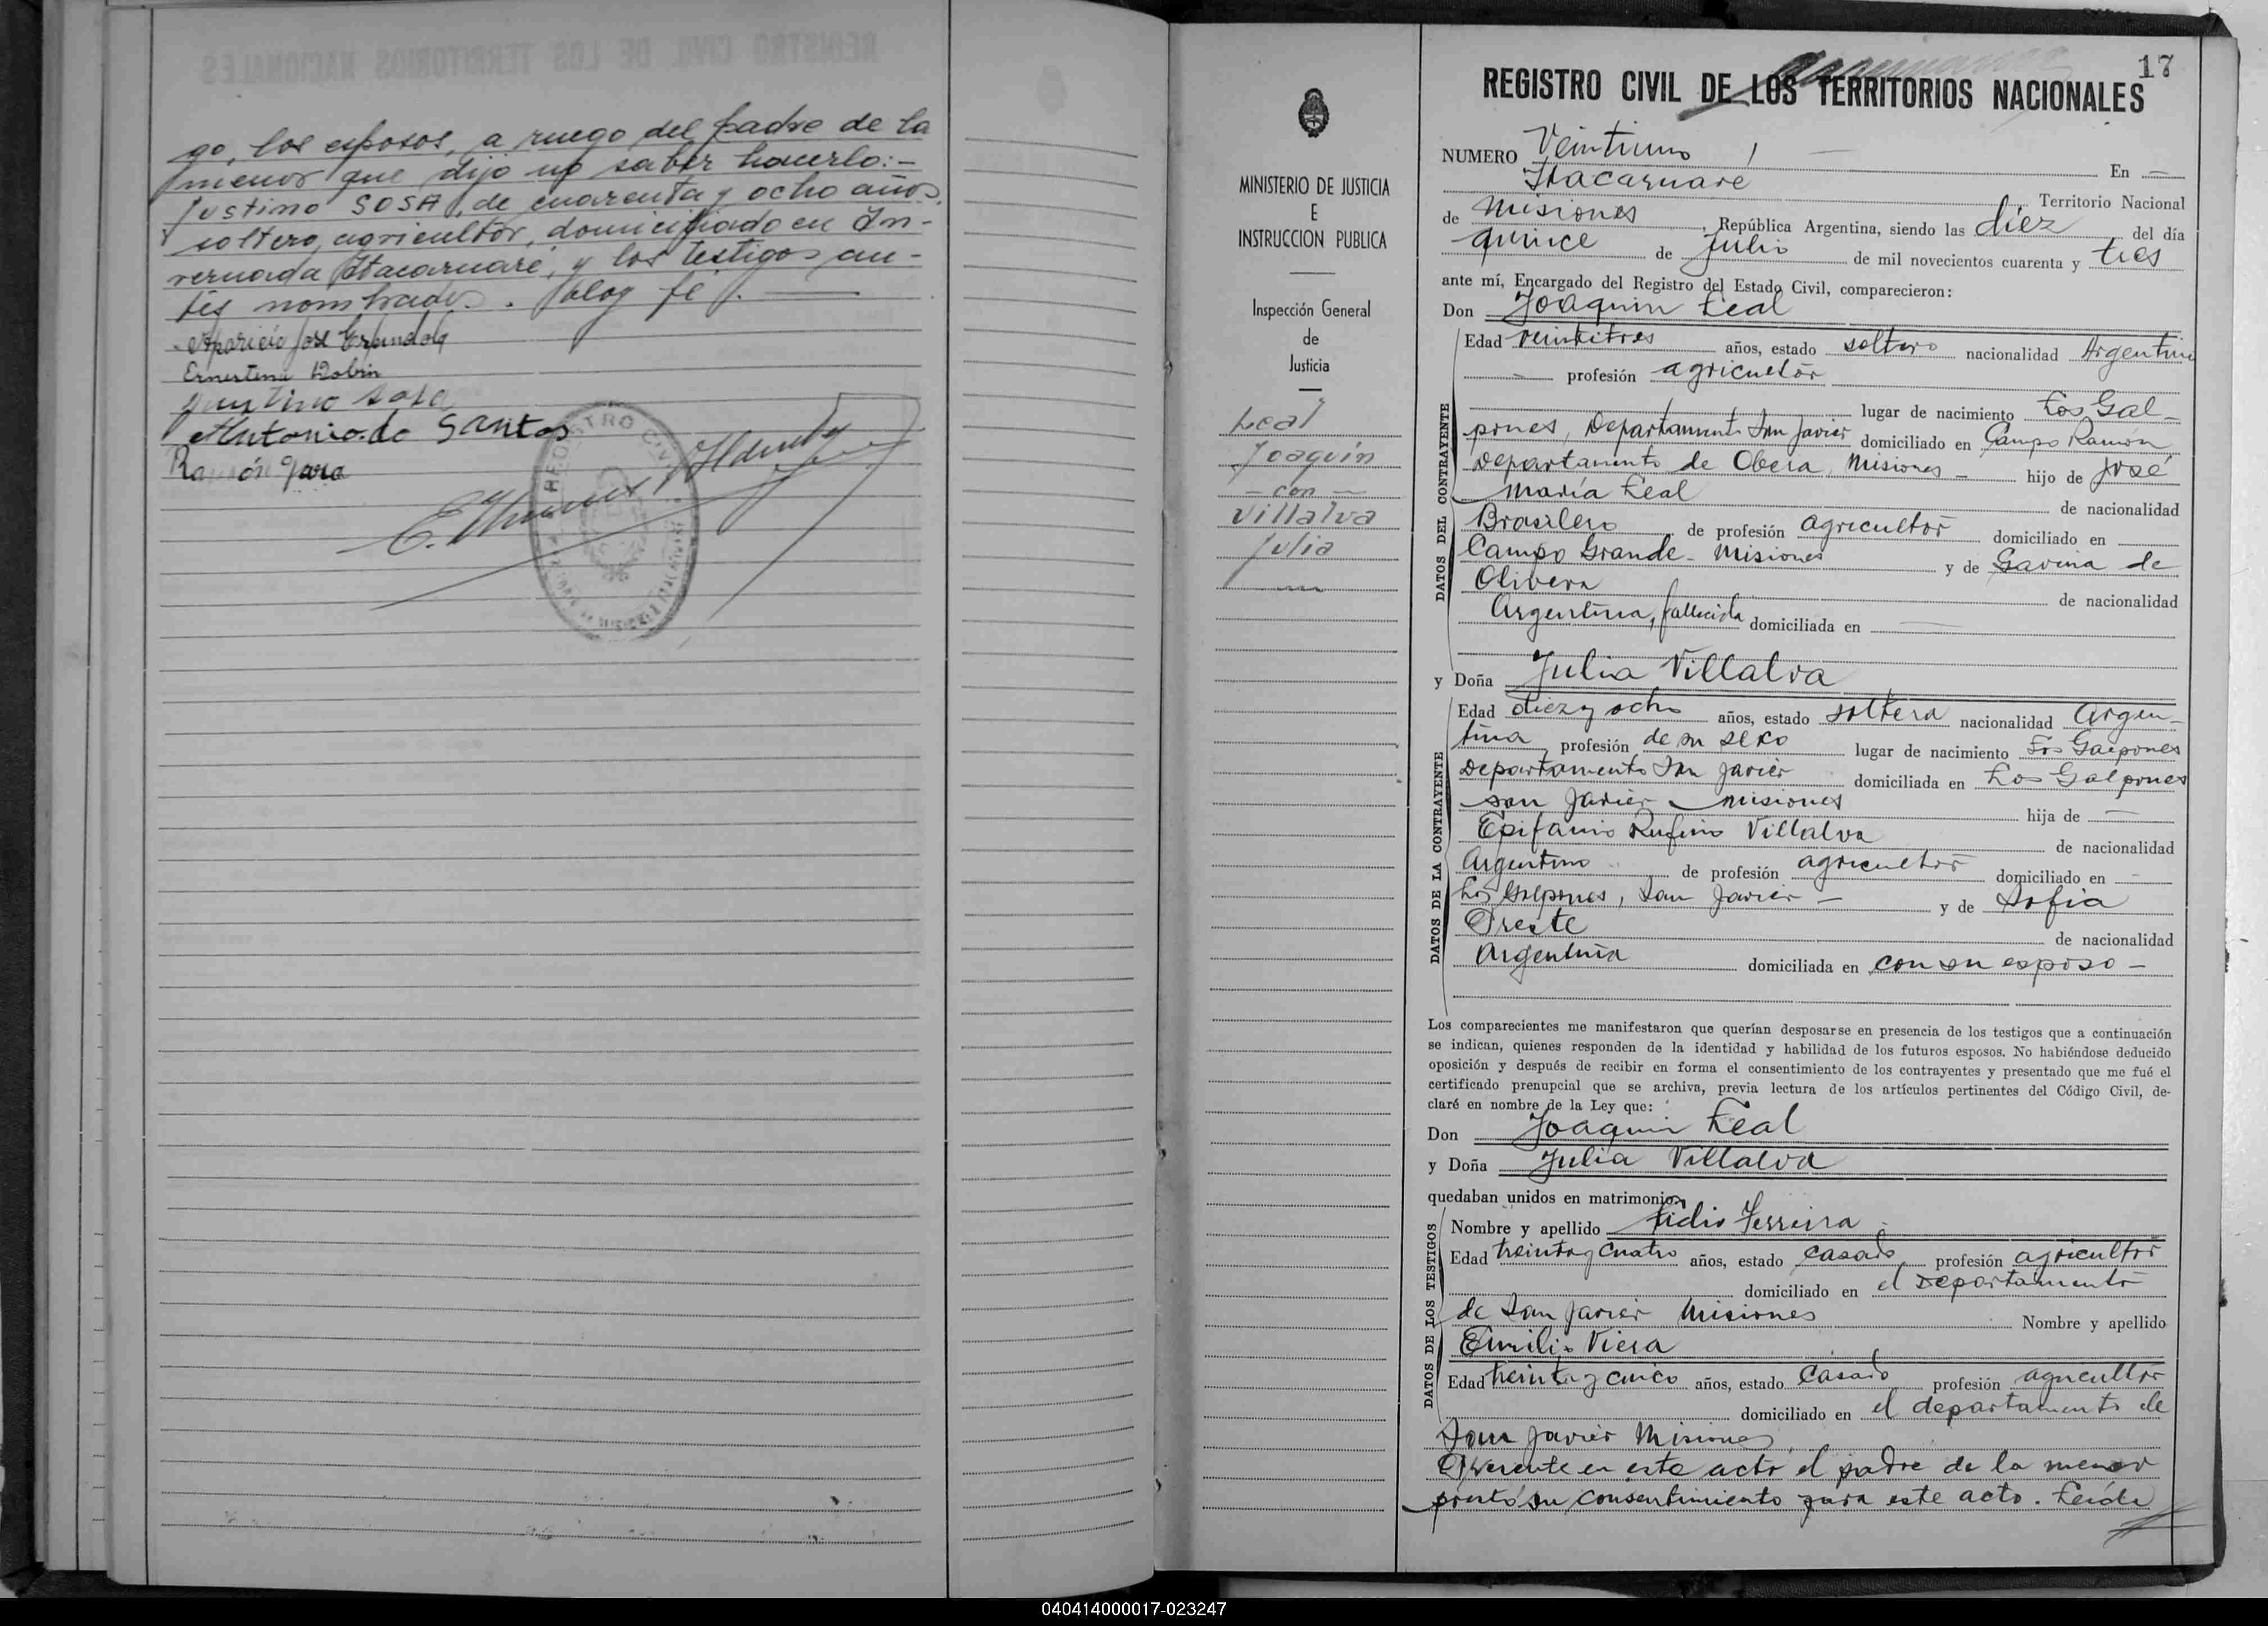 go, los esposos, a ruego del padre de la
menor que dijo no saber hacerlo:-
Justino SOSA, de cuarenta y ocho años,
soltero, agricultor, domiciliado en In-
vernada Itacaruaré, y los testigos an-
tes nombrados. Doy fe.
Aparicio José Espindola
Ernestina
Justino Sosa
Antonio do Santos
Ramón Jara
REGISTRO CIVIL
MINISTERIO DE JUSTICIA
E
INSTRUCCION PUBLICA
Inspección General
de
Justicia
Leal
Joaquín
- con -
Villalva
Julia
17
REGISTRO CIVIL DE LOS TERRITORIOS NACIONALES
NUMERO Veintiuno En
Itacaruare Territorio Nacional
de Misiones, República Argentina, siendo las diez del día
quince de Julio de mil novecientos cuarenta y tres
ante mí, Encargado del Registro del Estado Civil, comparecieron:
Don Joaquin Leal
DATOS DEL CONTRAYENTE
Edad veintitres años, estado soltero nacionalidad Argentino
profesión agricultor
lugar de nacimiento Los Gal-
pones, Departamento San Javier domiciliado en Campo Ramón
Departamento de Obera, Misiones hijo de José
María Leal de nacionalidad
Brasilero de profesión agricultor domiciliado en
Campo Grande - Misiones y de Gavina de
Olivera de nacionalidad
Argentina, fallecida domiciliada en
y Doña Julia Villalva
DATOS DE LA CONTRAYENTE
Edad diez y ocho años, estado soltera nacionalidad Argen-
tina, profesión de su sexo lugar de nacimiento Los Galpones
Departamento San Javier domiciliada en Los Galpones
San Javier - Misiones hija de
Epifanio Rufino Villalva de nacionalidad
Argentino de profesión agricultor domiciliado en
Los Galpones, San Javier - y de Sofia
Oreste de nacionalidad
Argentina domiciliada en con su esposo -
Los comparecientes me manifestaron que querían desposarse en presencia de los testigos que a continuación
se indican, quienes responden de la identidad y habilidad de los futuros esposos. No habiéndose deducido
oposición y después de recibir en forma el consentimiento de los contrayentes y presentado que me fué el
certificado prenupcial que se archiva, previa lectura de los artículos pertinentes del Código Civil, de-
claré en nombre de la Ley que:
Don Joaquin Leal
y Doña Julia Villalva
quedaban unidos en matrimonio.
DATOS DE LOS TESTIGOS
Nombre y apellido Lidio Ferreira
Edad treinta y cuatro años, estado casado profesión agricultor
domiciliado en el Departamento
de San Javier Misiones Nombre y apellido
Emilio Viera
Edad treinta y cinco años, estado casado profesión agricultor
domiciliado en el departamento de
San Javier Misiones
Presente en este acto el padre de la menor
prestó su consentimiento para este acto. Leída
040414000017-023247